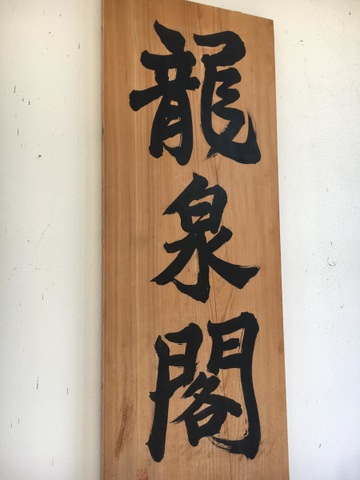 龍泉閣